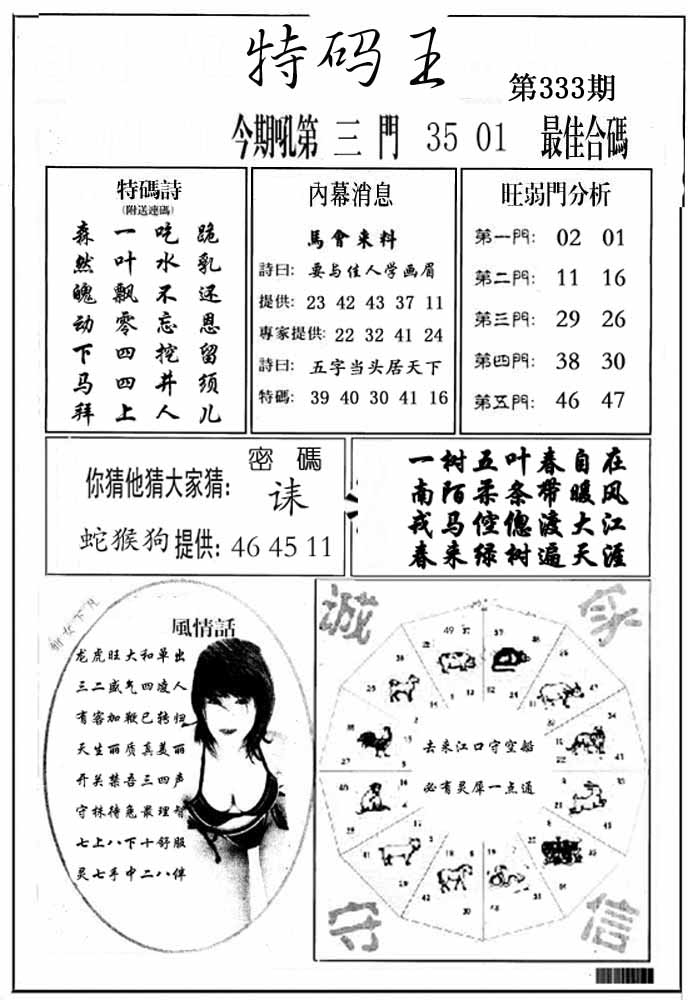 特码王
第333期
今期吼第 三 門 35 01 最佳合碼
特碼詩
(附送連碼)
森 一 吃 跪
然 叶 水 乳
魄 飘 不 还
动 零 忘 恩
下 四 挖 留
马 四 井 须
拜 上 人 儿
內幕消息
馬會来料
詩曰: 要与佳人学画眉
提供: 23 42 43 37 11
專家提供: 22 32 41 24
詩曰: 五字当头居天下
特碼: 39 40 30 41 16
旺弱門分析
第一門: 02 01
第二門: 11 16
第三門: 29 26
第四門: 38 30
第五門: 46 47
密 碼
你猜他猜大家猜: 诔
蛇猴狗 提供: 46 45 11
一树五叶春自在
南陌柔条带暖风
戎马倥偬渡大江
春来绿树遍天涯
風情話
龙虎旺大和单出
三二盛气四凌人
有客加鞭已转归
天生丽质真美丽
开关禁吾三四声
守株待兔最理
七上八下十舒服
灵七手中二八俾
诚
守
信
去来江口守空船
必有灵犀一点通